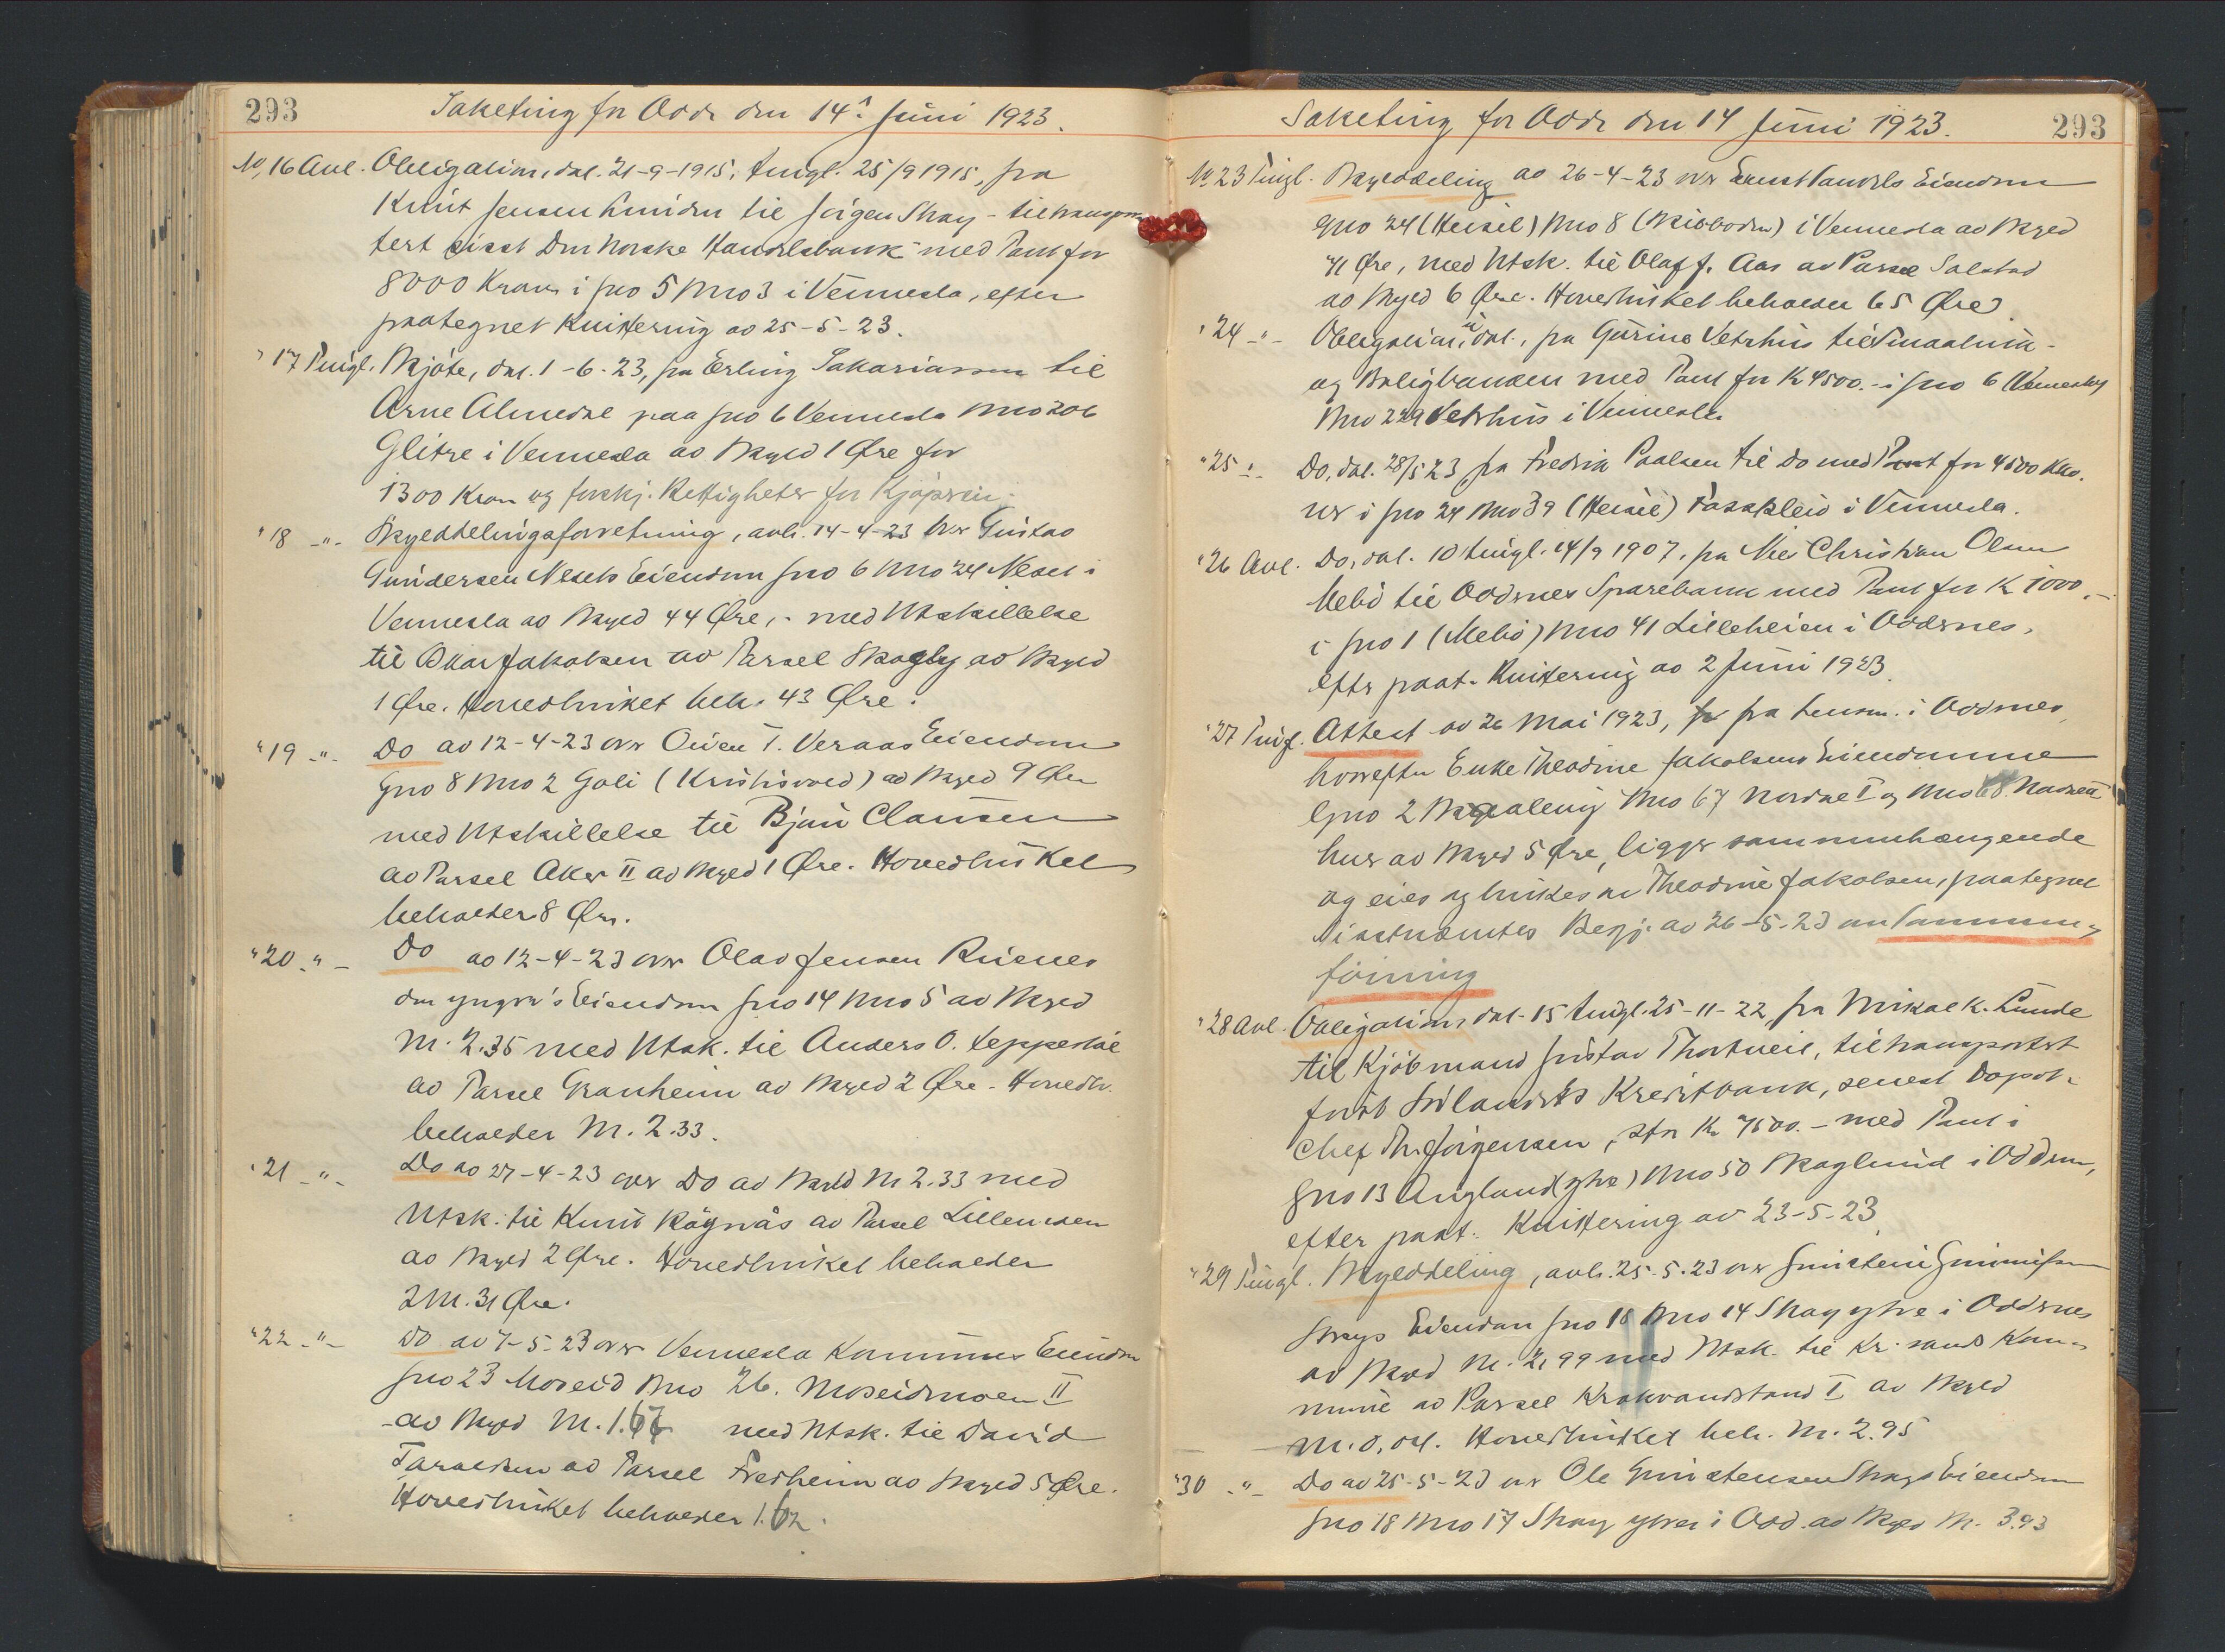 293
Saketing for Odd. den 14. Juni 1923.
No. 16 Avl. Obligation, dat. 21-9-1915, tingl. 25/9 1915, fra
Knut Jensen til Jørgen Skay - tiltranspor
tert sisst Den Norske Handelsbank med Pant for
8000 Kroner i Gno 5 Bno 3 i Vennesla, efter
paategnet Kvittering av 25-5-23.
" 17 Tingl. Skjøte, dat. 1-6-23, fra Erling Sakariassen til
Arne Almedal paa Gno 6 Vennesla Bno 206
Glitre i Vennesla av Skyld 1 Øre for
1300 Kron og forskj. Rettigheter for Kjøpsein.
" 18 -"- Skylddelingsforretning, avh. 14-4-23 over Gustav
Gundersen Nesets Eiendom Gno 6 Bno 24 Neset i
Vennesla av Skyld 44 Øre, - med Utskillelse
til Oskar Jakobsen av Parsel Skogly av Skyld
1 Øre. Hovedbruket beh. 43 Øre.
" 19 -"- Do av 12-4-23 over Eiven T. Veraas Eiendom
Gno 8 Bno 2 Gali (Kristisvold) av Skyld 9 Øre
med Utskillelse til Bjani Clausen
av Parsel Aker II av Skyld 1 Øre. Hovedbruket
beholder 8 Øre.
" 20 -"- Do av 12-4-23 over Olav Jensen Risnes
den yngre's Eiendom Gno 14 Bno 5 av Skyld
M. 2.35 med Utsk. til Anders O. Leppestøl
av Parsel Granheim av Skyld 2 Øre - Hovedbr.
beholder M. 2.33.
" 21 -"- Do av 27-4-23 over Do av Skyld M 2.33 med
Utsk. til Knut Røynås av Parsel Lillemoen
av Skyld 2 Øre. Hovedbruket beholder
2 M. 31 Øre.
" 22 -"- Do av 7-5-23 over Vennesla Kommunes Eiendom
Gno 23 Moseid Bno 26. Moseidmoen II
av Skyld M. 1.67 med Utsk. til David
Taraldsen av Parsel Fredheim av Skyld 5 Øre.
Hovedbruket beholder 1.62.
Saketing for Odd. den 14 Juni 1923.
293
No 23 Tingl. Skylddeling av 26-4-23 over Eiendom
Gno 24 (Heisel) Bno 8 (Skibboden) i Vennesla av Skyld
71 Øre, med Utsk. til Olaf J. Aas av Parsel Solstad
av Skyld 6 Øre. Hovedbruket beholder 65 Øre
" 24 -"- Obligation, u dat., fra Gurine Vetrhus til Smaabruk-
og Boligbanken med Pant for K 4500.- i Gno 6 (Vennesla)
Bno 229 Vetrhus i Vennesla
" 25 -"- Do, dat. 28/5 23, fra Fredrik Paulsen til Do med Pant for 4500 Kro.
ner i Gno 24 Bno 39 (Heisel) Fasskleiv i Vennesla.
" 26 Avl. Do, dat. 10 tingl. 14/9 1907, fra Nic Christian Olsen
Mebø til Oddernes Sparebank med Pant for K 1000.-
i Gno 1 (Mebø) Bno 41 Lilleheien i Oddernes,
efter paat. Kvittering av 2 Juni 1923.
" 27 Tingl. Attest av 26 Mai 1923, fra Lensm. i Oddernes,
hvorefter Enke Theodine Jakobsens Eiendomme
Gno 2 Bno 67 Nordre I og Bno 68
hus av Skyld 5 Øre, ligger sammenhængende
og eies og brukes av Theodine Jakobsen, paategnet
Distriktets Begj. av 26-5-23 om Sammen-
føining
" 28 Avl. Obligation, dat. 15 tingl. 25-11-22, fra Mikal K. Lunde
til Kjøbmand Gustav Thortveit, tiltransportert
først Sørlandets Kreditbank, senest Depot-
chef Th. Jørgensen, stor K 7500.- med Pant i
Gno 13 Augland (ytre) Bno 50 Skoglund i Oddern,
efter paat. Kvittering av 23-5-23.
" 29 Tingl. Skylddeling, avh. 25.5.23 over
Skays Eiendom Gno 18 Bno 14 Skay ytre i Oddernes
av Skyld M. 2,99 med Utsk. til Kr.sands Kom-
mune av Parsel Krakvandstand I av Skyld
M. 0,04. Hovedbruket beh. M. 2.95
" 30 -"- Do av 25-5-23 over Ole Gunstensen Skays Eiendom
Gno 18 Bno 17 Skay ytre i Odd. av Skyld M. 3.93